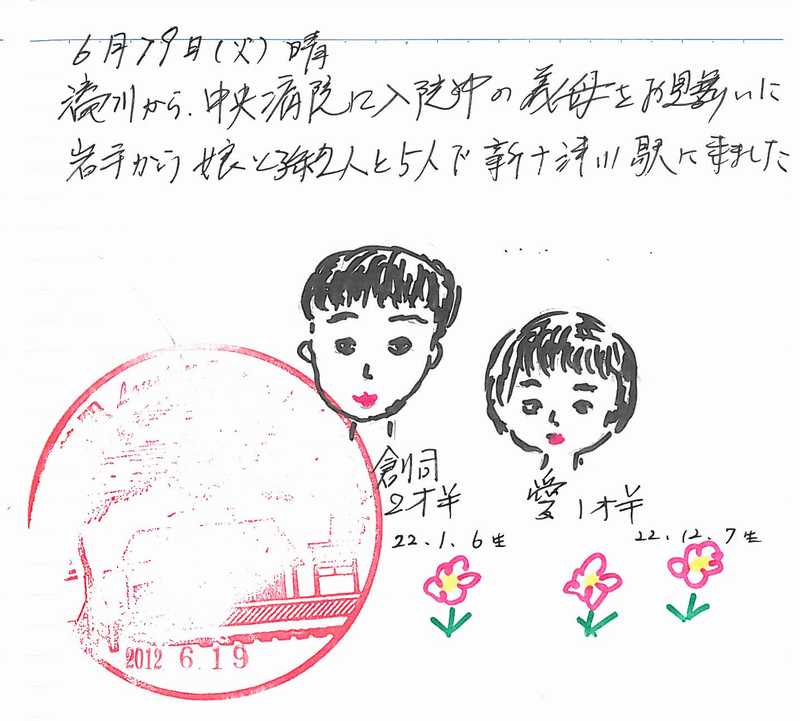 6月19日(火)晴
滝川から、中央病院に入院中の義母をお見舞いに
岩手から娘と孫2人と5人で新十津川駅に来ました
創同
2才半
22.1.6生
愛
1才半
22.12.7生
2012 6.19